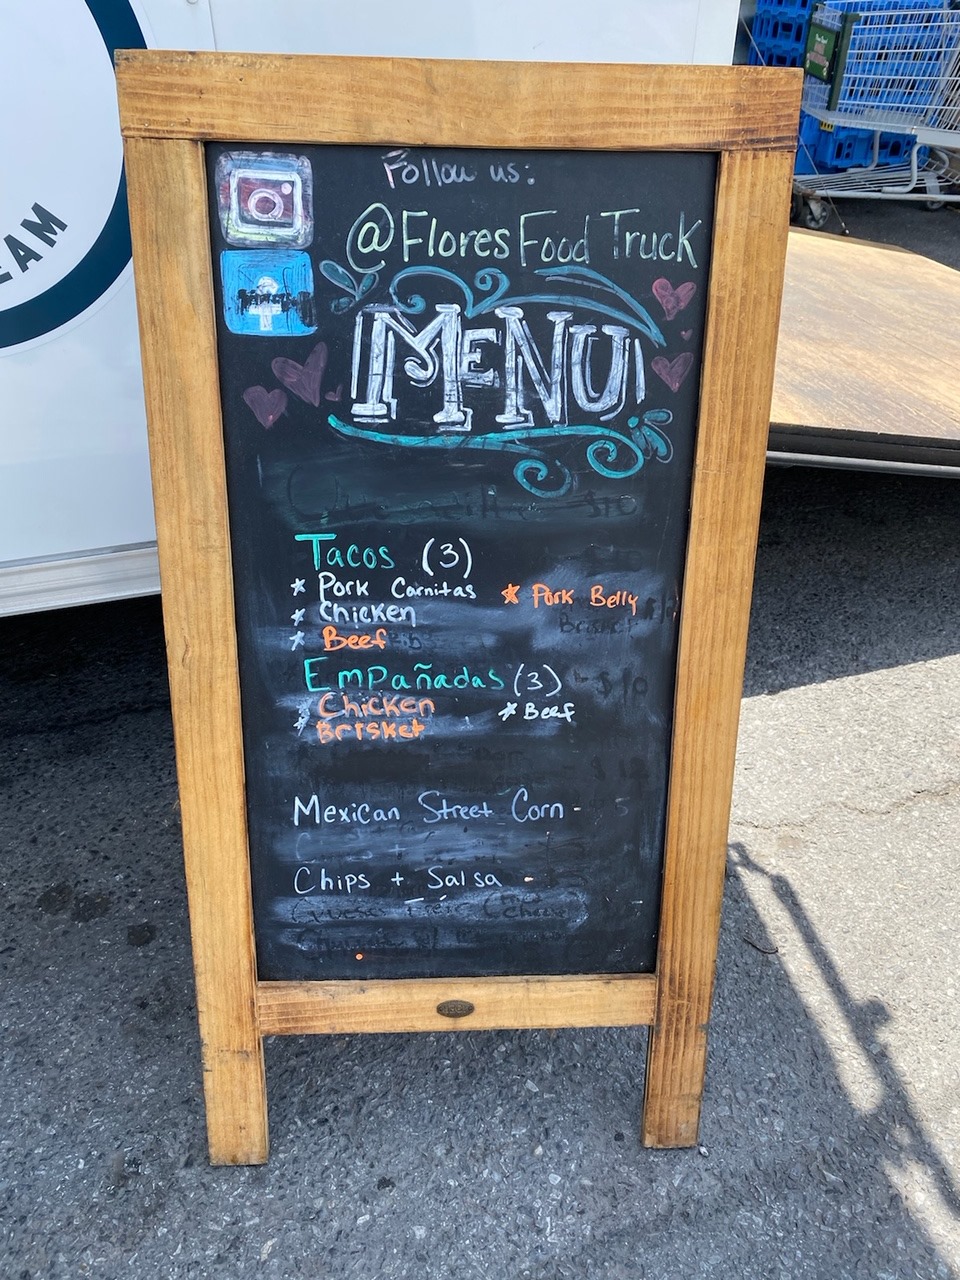 EAM
Follow us:
@Flores Food Truck
MENU
Tacos (3)
* Pork Carnitas * Pork Belly
* Chicken
* Beef
Empañadas (3) - $10
* Chicken * Beef
* Brisket
Mexican Street Corn -
Chips + Salsa -